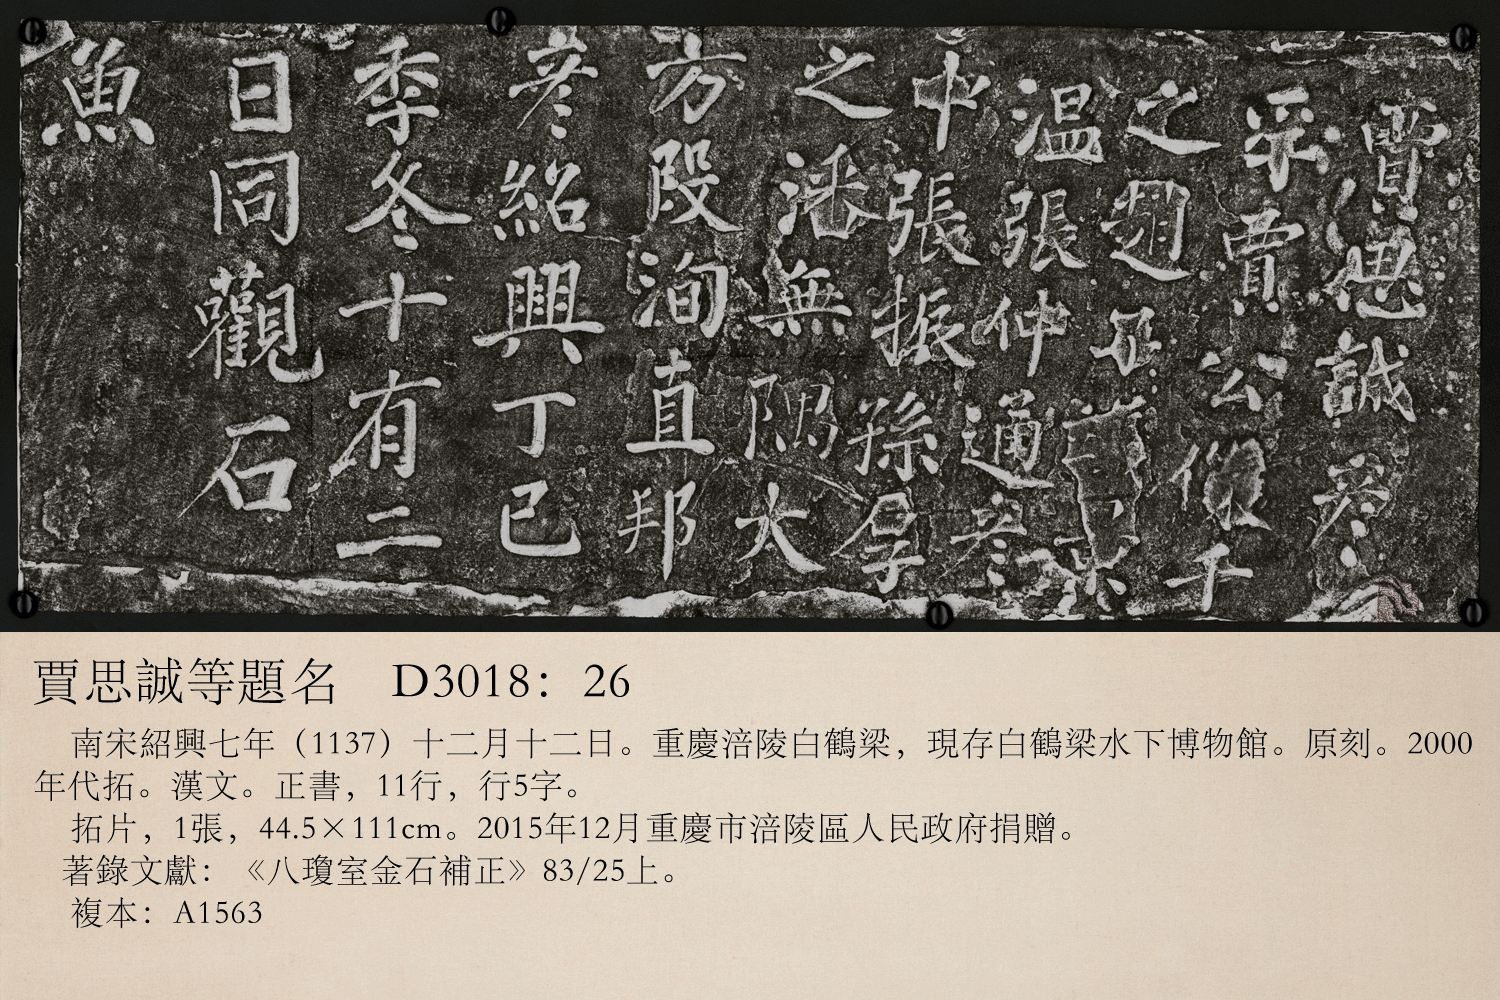 賈思誠彥
賈公傑千
之趙
温張仲通彥
中張振孫厚
之潘無隅大
方段洵直邦
彥紹興丁巳
季冬十有二
日同觀石
魚
賈思誠等題名　D3018：26
南宋紹興七年（1137）十二月十二日。重慶涪陵白鶴梁，現存白鶴梁水下博物館。原刻。2000
年代拓。漢文。正書，11行，行5字。
拓片，1張，44.5×111cm。2015年12月重慶市涪陵區人民政府捐贈。
著錄文獻：《八瓊室金石補正》83/25上。
複本：A1563